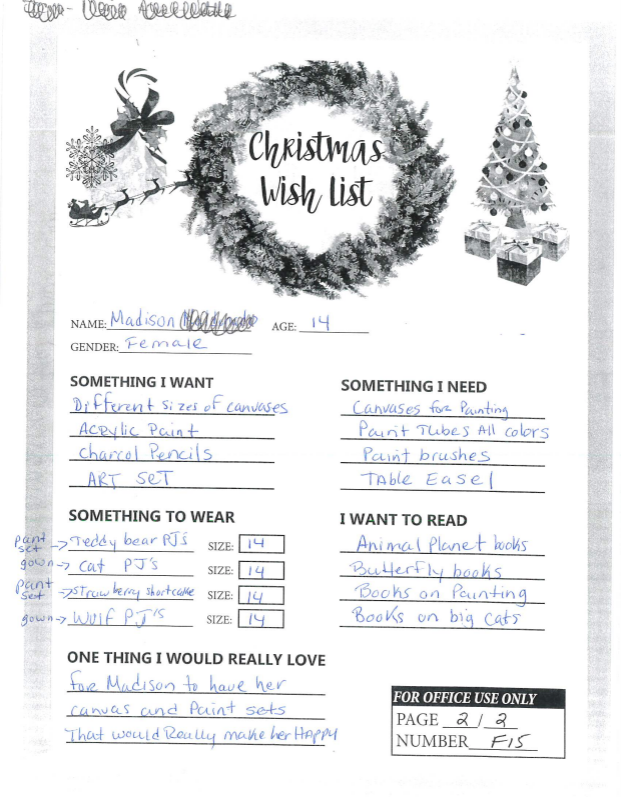 Christmas
Wish List
NAME: Madison AGE: 14
GENDER: Female
SOMETHING I WANT
Different sizes of canvases
Acrylic Paint
Charcol Pencils
ART SET
SOMETHING I NEED
Canvases for Painting
Paint Tubes All colors
Paint brushes
Table Easel
SOMETHING TO WEAR
pant set -> Teddy bear PJ's SIZE: 14
gown -> Cat PJ's SIZE: 14
pant set -> Strawberry shortcake SIZE: 14
gown -> Wolf PJ's SIZE: 14
I WANT TO READ
Animal Planet books
Butterfly books
Books on Painting
Books on big cats
ONE THING I WOULD REALLY LOVE
for Madison to have her
canvas and Paint sets
That would Really make her HAPPY
FOR OFFICE USE ONLY
PAGE 2 / 2
NUMBER F15